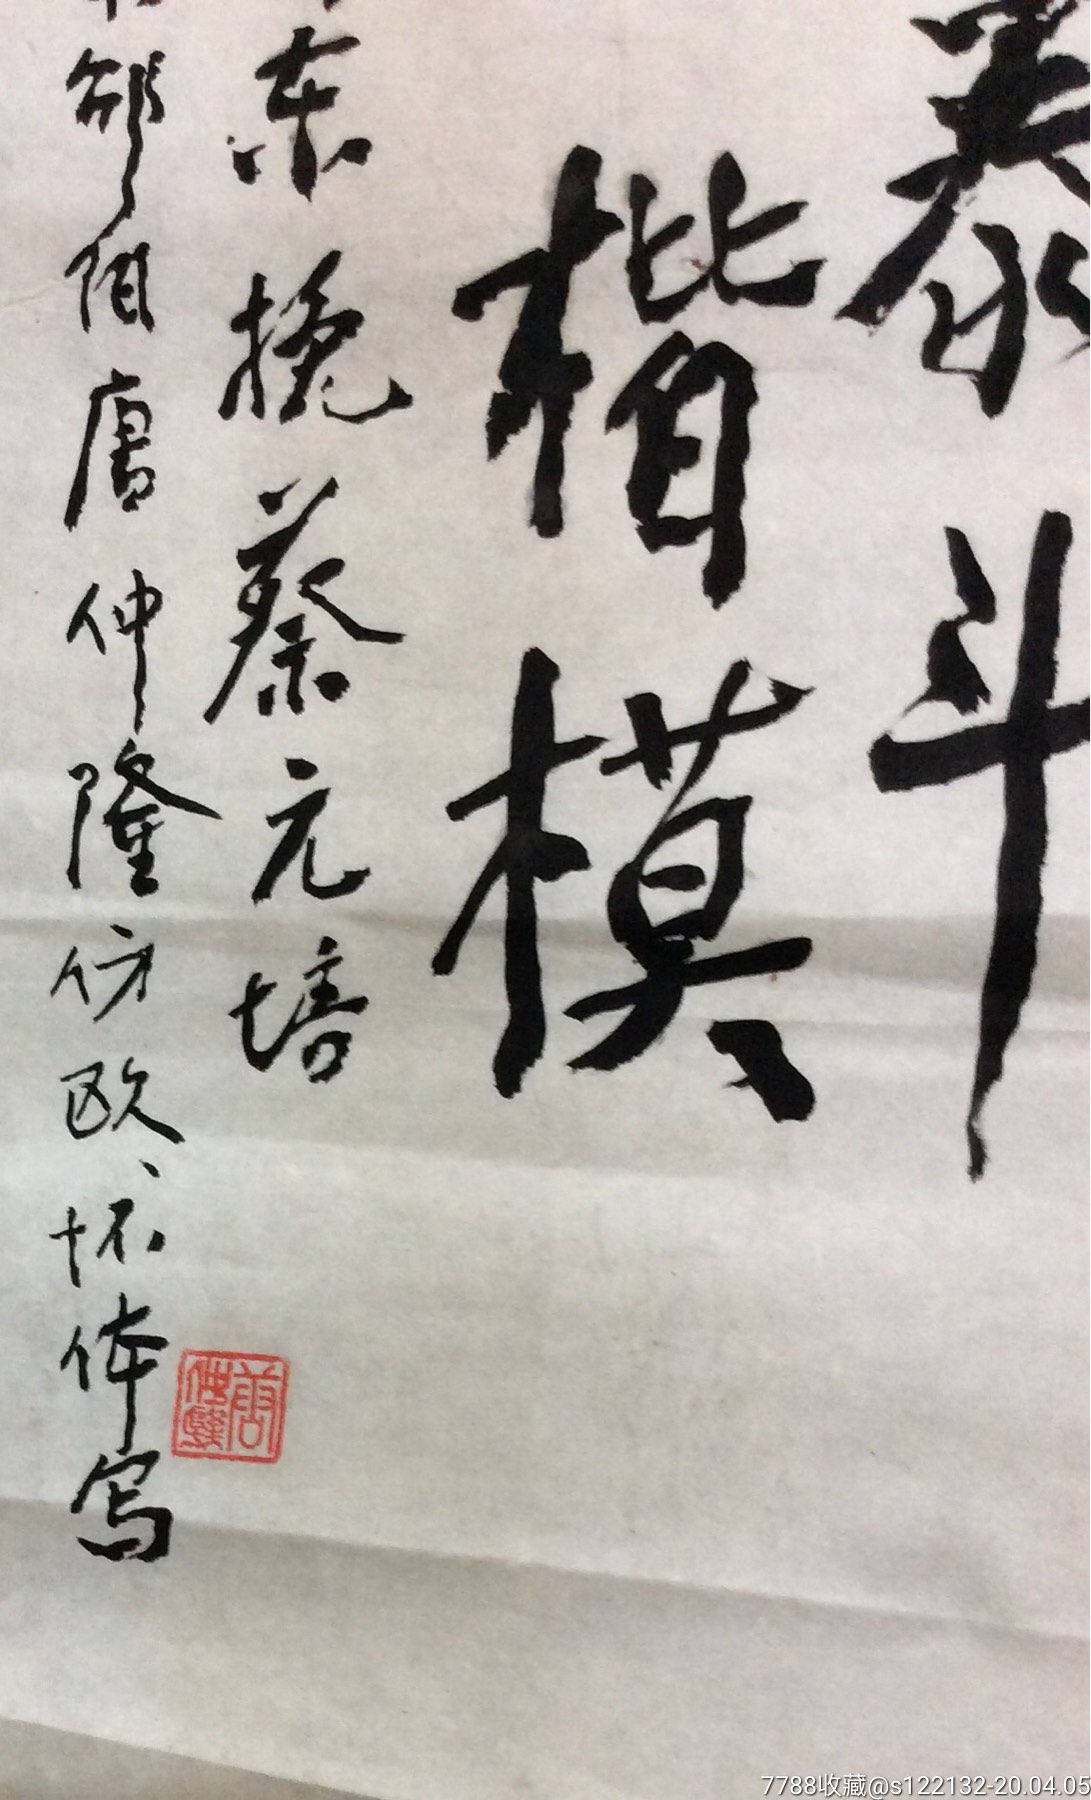 泰斗
楷模
东挽蔡元培
邵阳唐仲隆仿欧、怀体写
7788收藏@s122132-20.04.05